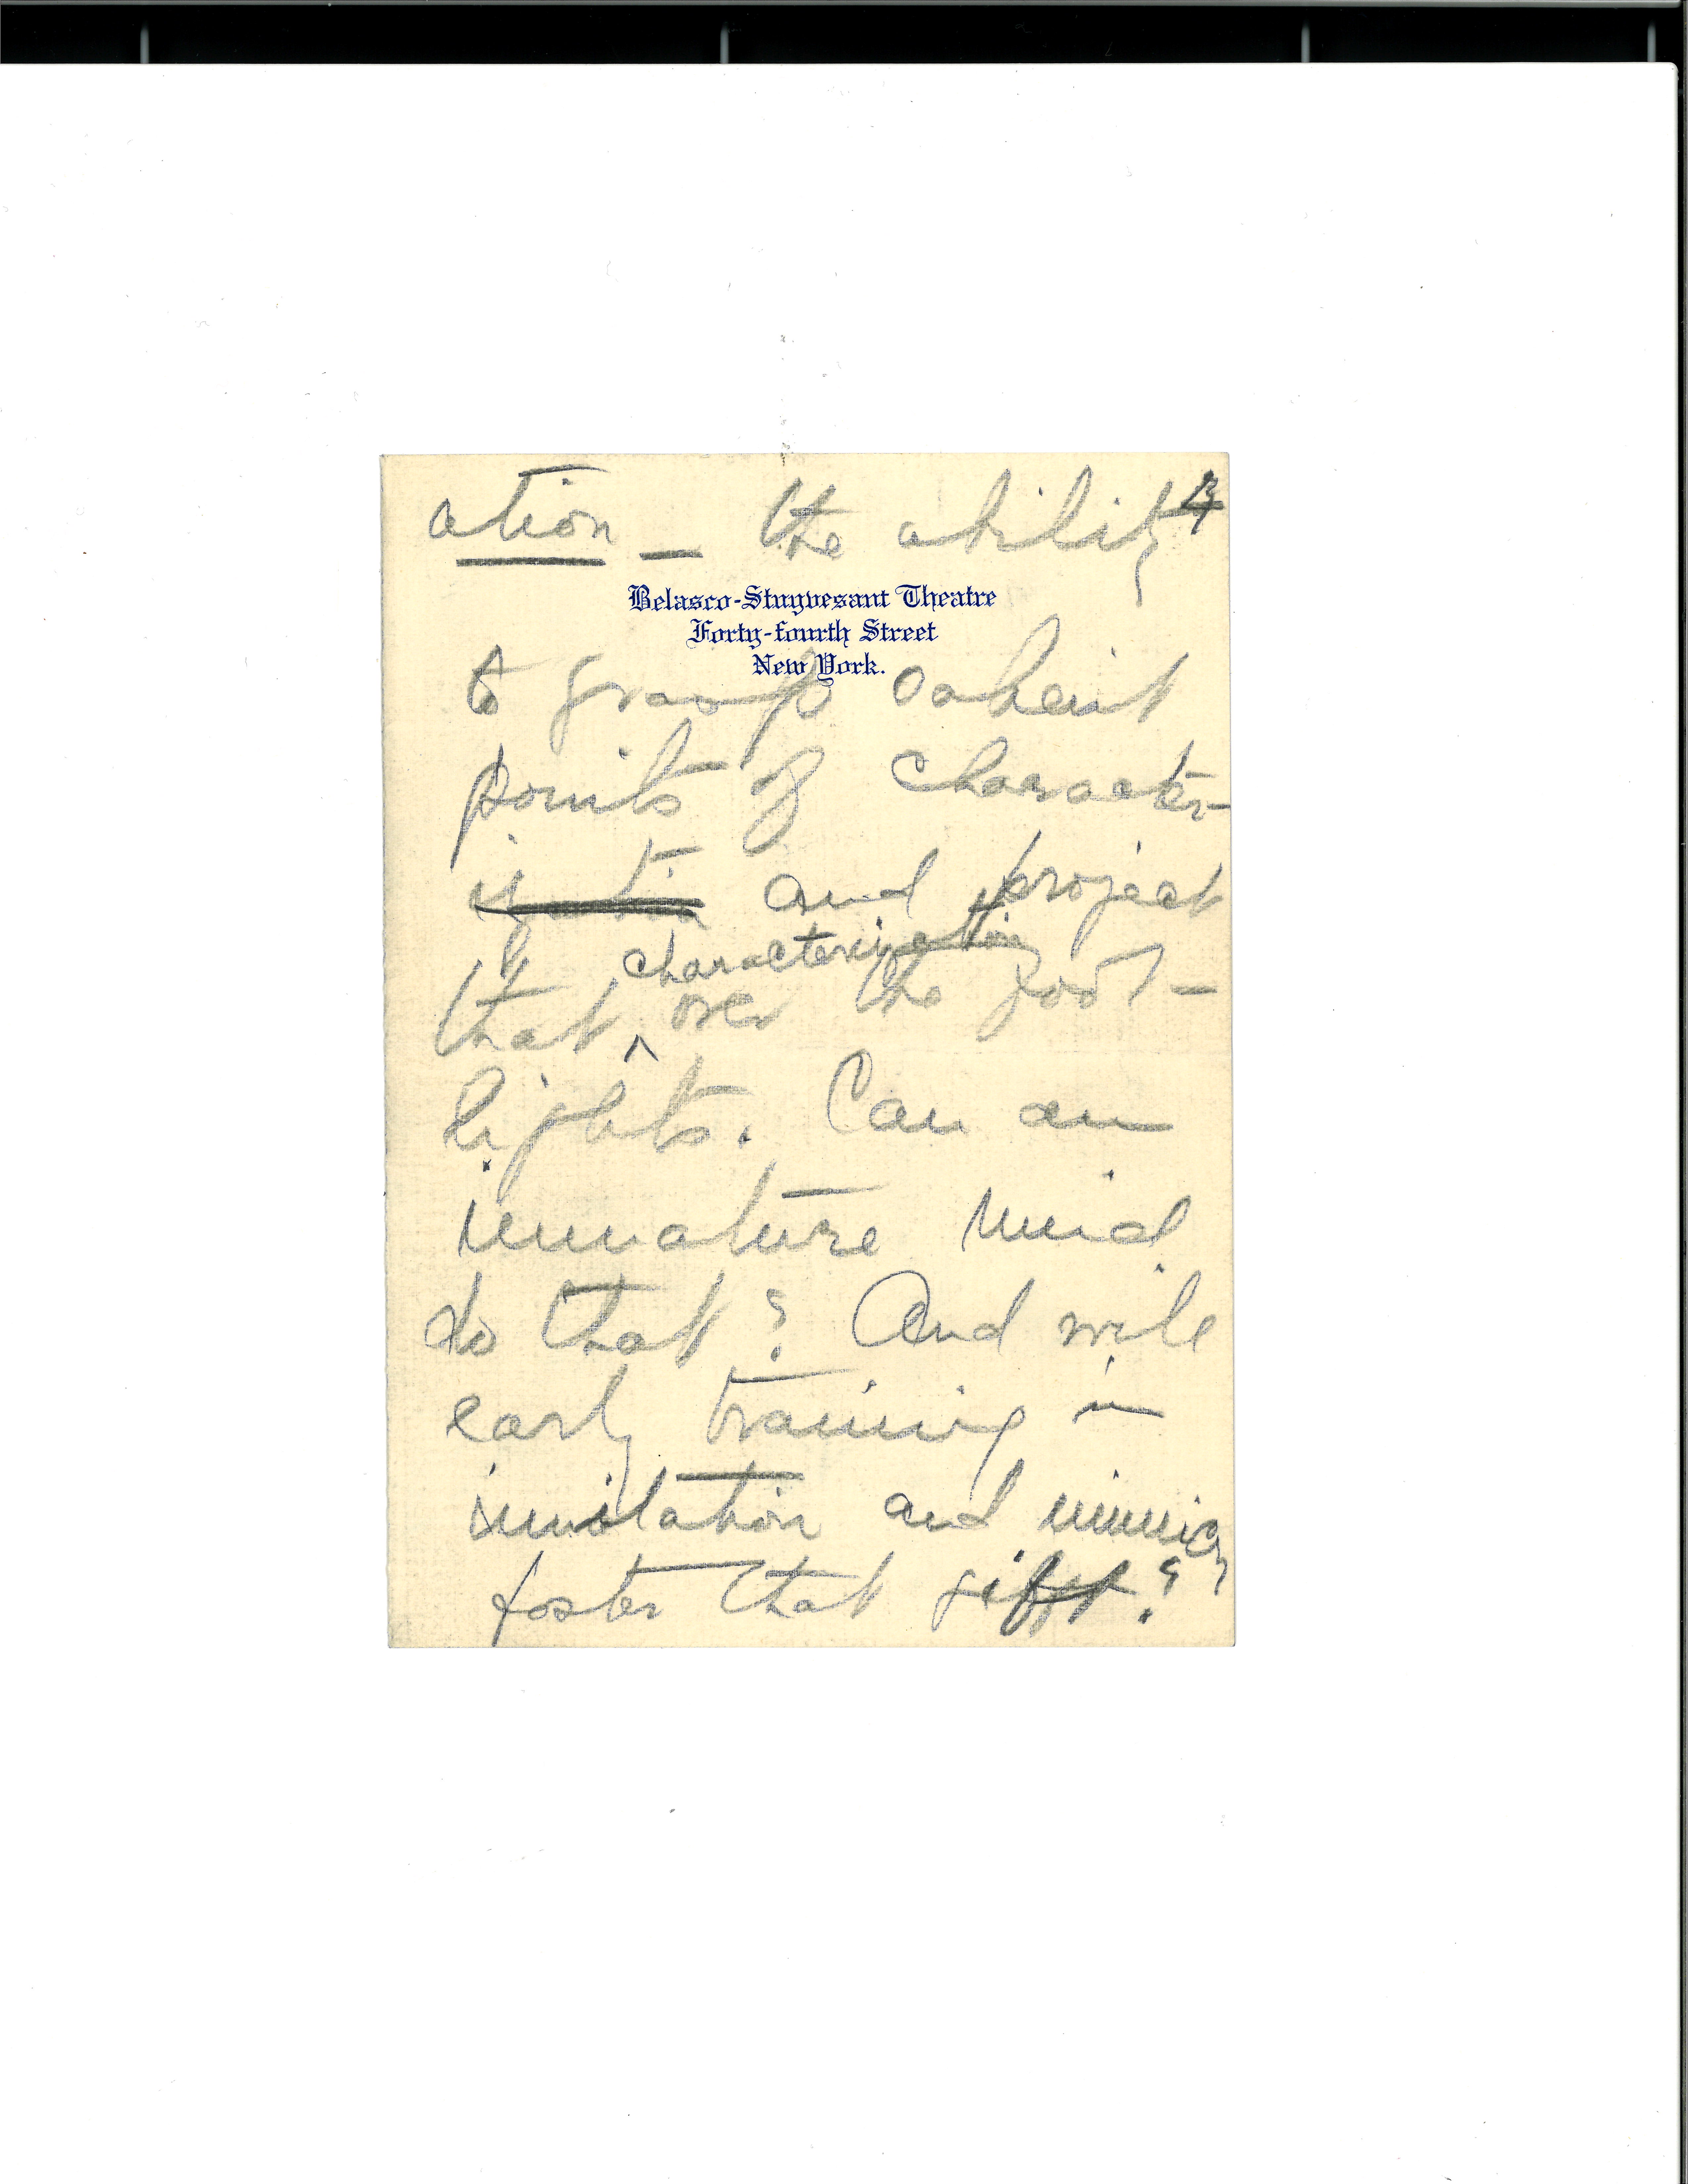 4
ation — the ability
Belasco-Stuyvesant Theatre
Forty-fourth Street
New York.
to grasp salient
points of character-
and project
characterization
that ^ over the foot-
lights. Can an
immature mind
do that? And will
early training in
imitation and mimicry
foster that gift?